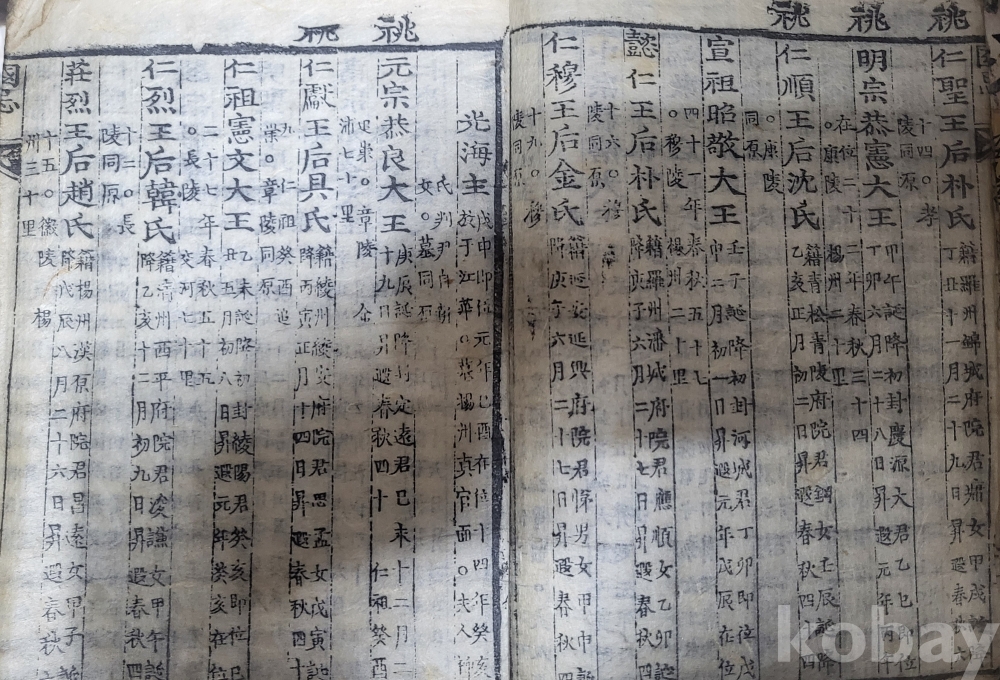 祧
祧
祧
仁聖王后朴氏
籍羅州錦城府院君墉女甲戌誕降
丁丑十一月二十九日昇遐春秋六
十四。孝
陵同原
明宗恭憲大王
甲午誕降初封慶源大君乙巳即位
丁卯六月二十八日昇遐元年丙午
在位二十二年春秋三十四
。康陵 楊州二十里
仁順王后沈氏
籍青松青陵府院君鋼女壬辰誕降
乙亥正月初二日昇遐春秋四十四
。康陵
同原
宣祖昭敬大王
壬子誕降初封河城君丁卯即位戊
申二月初一日昇遐元年戊辰在位
四十一年春秋五十七
。穆陵 楊州二十里
懿仁王后朴氏
籍羅州潘城府院君應順女乙卯誕
降庚子六月二十七日昇遐春秋四
十六。穆
陵同原
仁穆王后金氏
籍延安延興府院君悌男女甲申誕
降 六月二十八日昇遐春秋四
十九。穆
陵同原
祧
祧
光海主
戊申即位元年己酉在位十四年癸亥
於于江華。葬楊州真官面。夫人
氏判尹自新
女。墓同原
元宗恭良大王
庚辰誕降封定遠君己未十二月二
十九日昇遐春秋四十 仁祖癸酉
追崇。章陵 金
浦七十里
仁獻王后具氏
籍綾州綾安府院君思孟女戊寅誕
降丙寅正月十四日昇遐春秋四十
九 仁祖癸酉追
崇。章陵同原
仁祖憲文大王
乙未誕降初封綾陽君癸亥即位己
丑五月初八日昇遐元年癸亥在位
二十七年春秋五十五
。長陵 交河七十里
仁烈王后韓氏
籍清州西平府院君浚謙女甲午誕
降乙亥十二月初九日昇遐春秋四
十二。長
陵同原
莊烈王后趙氏
籍楊州漢原府院君昌遠女甲子誕
降戊辰八月二十六日昇遐春秋
十五。徽陵 楊
州三十里
國志
kobay